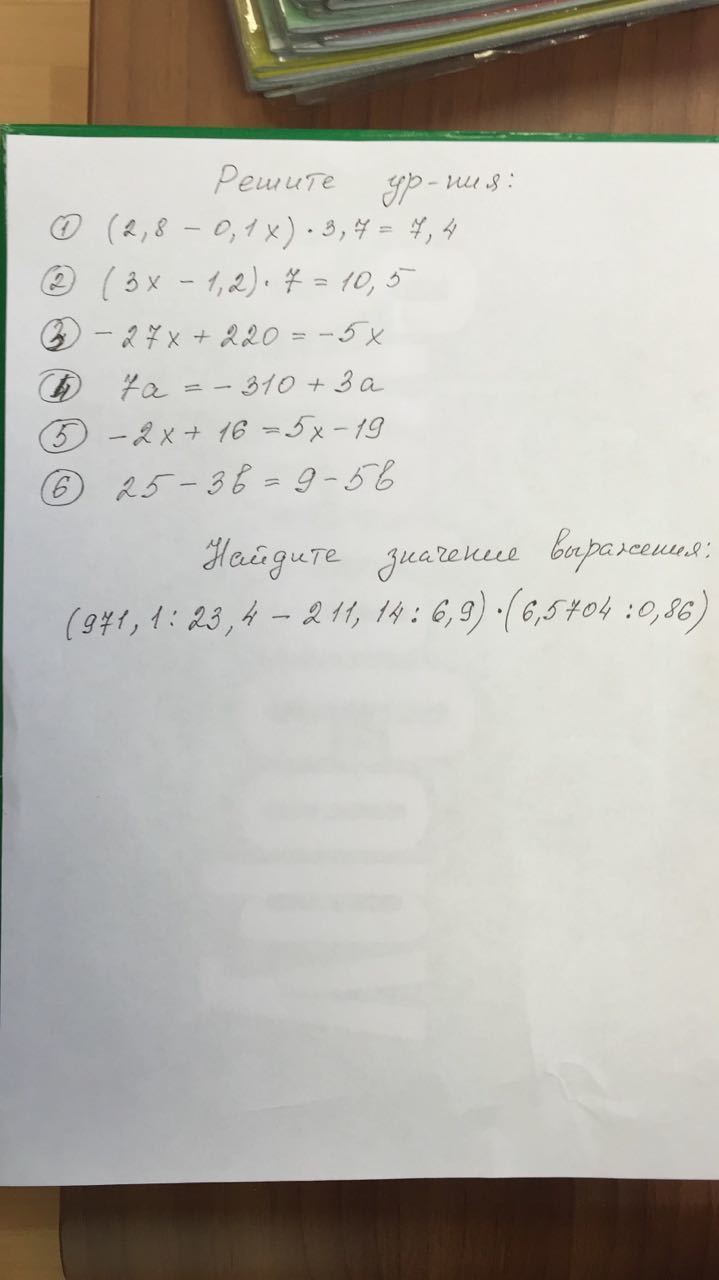 Решите ур-ния:
① (2,8 - 0,1x) · 3,7 = 7,4
② (3x - 1,2) · 7 = 10,5
③ - 27x + 220 = -5x
④ 7a = - 310 + 3a
⑤ -2x + 16 = 5x - 19
⑥ 25 - 3в = 9 - 5в
Найдите значение выражения:
(971,1 : 23,4 - 211,14 : 6,9) · (6,5704 : 0,86)